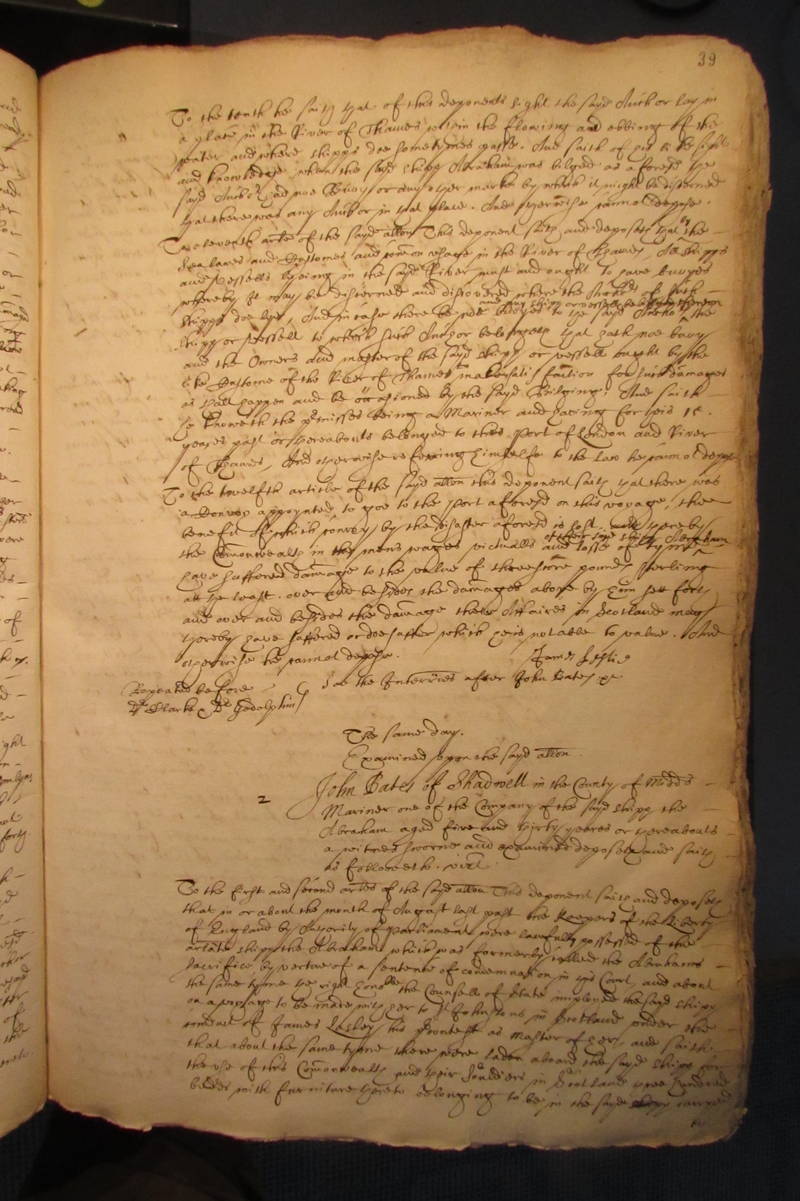 39
To the tenth he saith that of this deponents sight the sayd Anchor lay in
a place in the River of Thames within the flowing and ebbing of the
water and where shipps doe sometymes passe. And saith of his sight
and knowledge when the sayd shipp Abraham was bilged as aforesd the
sayd Anchor had noe Buoy or any other marke by which it might be discerned
that there was any Anchor in that place. And otherwise cannot depose.
To the eleventh arte of the sayd allon This deponent saith and deposeth that by the
lawes and Customes and common usage in the River of Thames, All shipps
and vessells lyeing in the sayd River must and ought to have buoyes
whereby it may be discerned and discovered where the Anchors of such
shipps doe lye, And in case there be noe buoyes to the sayd Anchors the
and any shipp or vessell be thereon
shipp or vessell to which such Anchor belongeth that hath noe buoy
and the Owners and master of the sayd shipp or vessell ought by the
Custome of the River of Thames to make satisfaction for such damages
as shall happen and be occasioned by the sayd Bilging; And saith
he knoweth the premisses being a Mariner and having for this 15.
yeares past or thereabouts belonged to this Port of London and River
of Thames, And otherwise referring himselfe to the law he cannot depose
To the twelfth article of the sayd allon this deponent saith that there was
a Convoy appoynted to goe to the Port aforesd on this voyage, the
benefit of which convoy by the disaster aforesd is lost, thereby
the Comonwealth in the mens wages victualls and losse of tyme
of their sayd shipp Abraham
have suffered damage to the value of threescore pounds sterling
att the least. over and besides the damages above by him set forth
and over and besides the damage their Affaires in Scotland may
thereby have suffered or doe suffer which hee is not able to value. And
otherwise he cannot depose.
James Leslie
Repeated before
Dr Clarke & Dr Godolphin
To the Interries after John Bates &c
The same day.
Examined upon the sayd allon.
2
John Bates of Shadwell in the County of Midds
Mariner one of the Company of the sayd shipp the
Abraham aged five and thirty yeares or thereabouts
a witnes sworne and examined deposeth and saith
as followeth. vizt
To the first and second artes of the sayd allon This deponent saith and deposeth
that in or about the month of August last past the Keepers of the Liberty
of England by Authority of Parliament were lawfully possessed of the
arlate shipp the Abraham which was formerly called the Abrahams
Sacrifice by vertue of a sentence of condemnation in this Court, and about
the same tyme the right honoble the Counsell of State imployed the sayd shipp
on a voyage to be made with her to St Johnstons in Scotland under the
comand of James Lasley his Contest as Master of her, and saith
that about the same tyme there were laden aboard the sayd shipp for
the use of this Comonwealth and their souldiers in Scotland three hundred
bedds with furniture thereto belonging to be in the sayd shipp carried